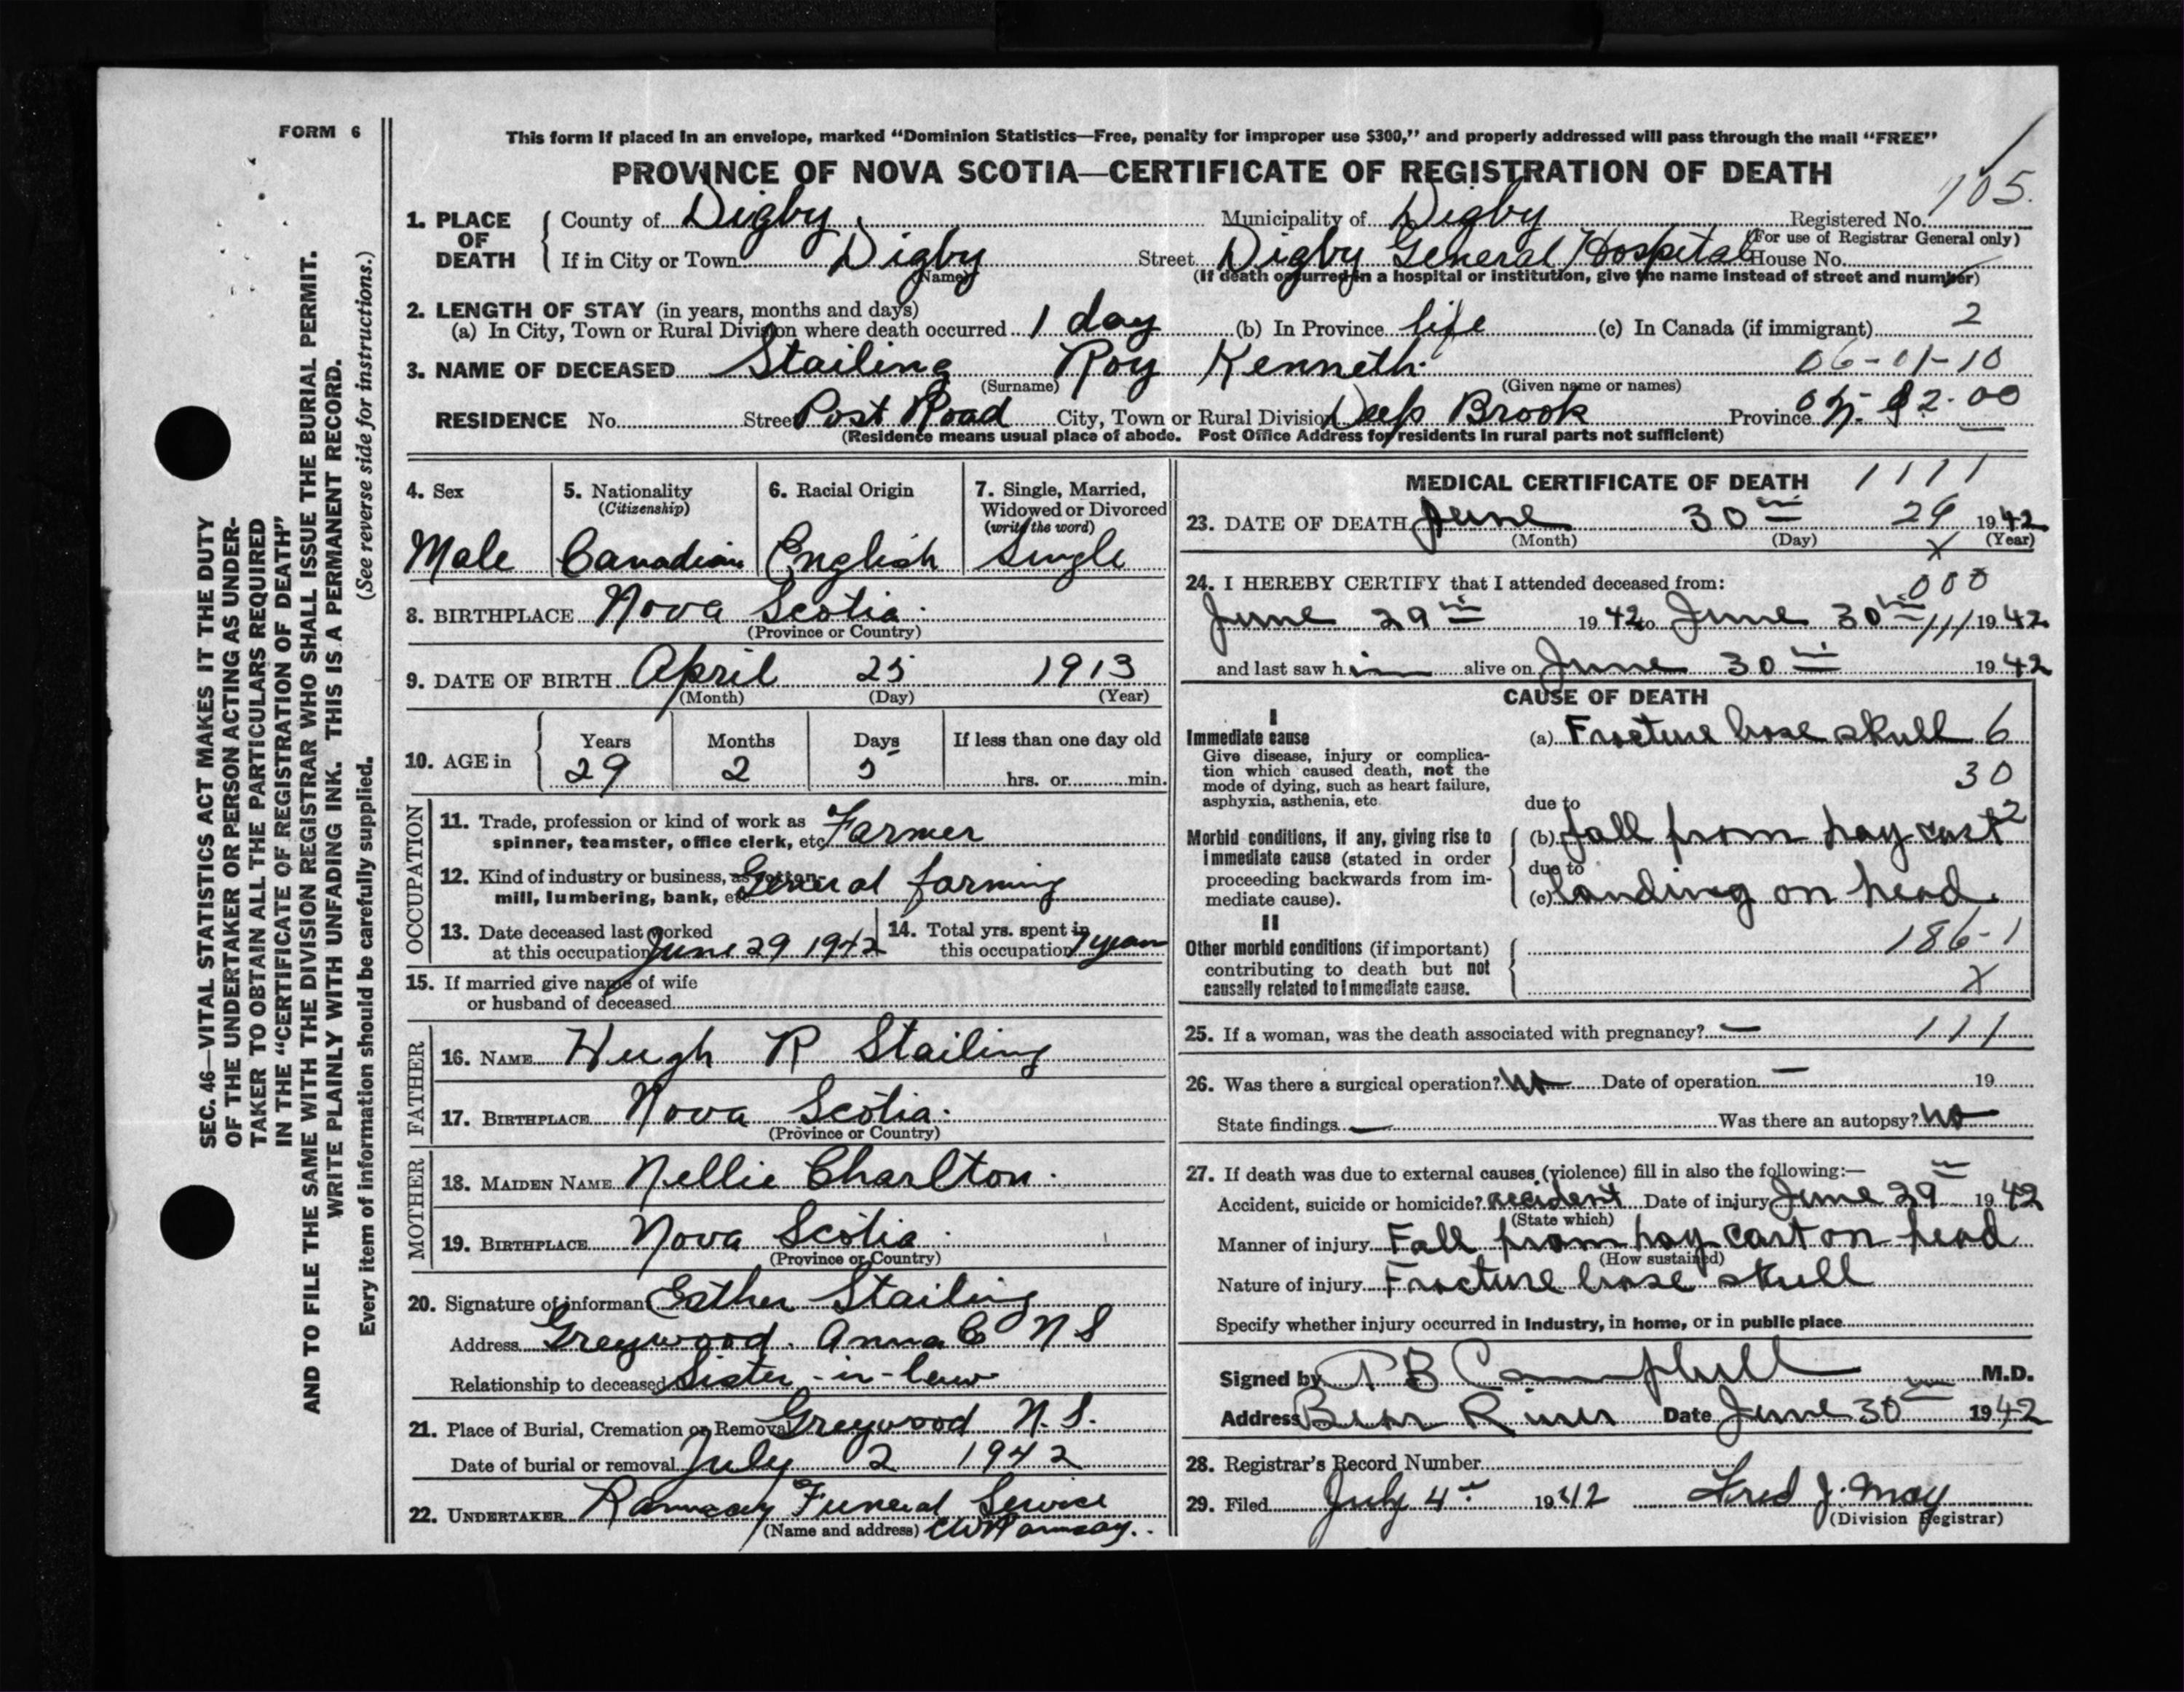 FORM 6
This form if placed in an envelope, marked “Dominion Statistics—Free, penalty for improper use $300,” and properly addressed will pass through the mail “FREE”
PROVINCE OF NOVA SCOTIA—CERTIFICATE OF REGISTRATION OF DEATH
105.
1. PLACE OF DEATH County of Digby Municipality of Digby Registered No.
(For use of Registrar General only)
If in City or Town Digby Street Digby General Hospital House No.
(Name) (If death occurred in a hospital or institution, give the name instead of street and number)
2. LENGTH OF STAY (in years, months and days)
(a) In City, Town or Rural Division where death occurred 1 day (b) In Province life (c) In Canada (if immigrant) 2
3. NAME OF DECEASED Stailing Roy Kenneth 06-01-10
(Surname) (Given name or names)
RESIDENCE No. Street Post Road City, Town or Rural Division Deep Brook Province N.S.
(Residence means usual place of abode. Post Office Address for residents in rural parts not sufficient)
SEC. 46—VITAL STATISTICS ACT MAKES IT THE DUTY
OF THE UNDERTAKER OR PERSON ACTING AS UNDER-
TAKER TO OBTAIN ALL THE PARTICULARS REQUIRED
IN THE “CERTIFICATE OF REGISTRATION OF DEATH”
AND TO FILE THE SAME WITH THE DIVISION REGISTRAR WHO SHALL ISSUE THE BURIAL PERMIT.
WRITE PLAINLY WITH UNFADING INK. THIS IS A PERMANENT RECORD.
Every item of information should be carefully supplied. (See reverse side for instructions.)
4. Sex 5. Nationality 6. Racial Origin 7. Single, Married,
(Citizenship) Widowed or Divorced
(write the word)
Male Canadian English Single
8. BIRTHPLACE Nova Scotia
(Province or Country)
9. DATE OF BIRTH April 25 1913
(Month) (Day) (Year)
10. AGE in Years Months Days If less than one day old
29 2 5 hrs. or min.
OCCUPATION
11. Trade, profession or kind of work as Farmer
spinner, teamster, office clerk, etc.
12. Kind of industry or business, as cotton General farming
mill, lumbering, bank, etc.
13. Date deceased last worked 14. Total yrs. spent in
at this occupation June 29 1942 this occupation 7 years
15. If married give name of wife
or husband of deceased
FATHER
16. NAME Hugh R Stailing
17. BIRTHPLACE Nova Scotia
(Province or Country)
MOTHER
18. MAIDEN NAME Nellie Charlton
19. BIRTHPLACE Nova Scotia
(Province or Country)
20. Signature of informant Esther Stailing
Address Greywood. Anna Co N S
Relationship to deceased Sister-in-law
21. Place of Burial, Cremation or Removal Greywood N.S.
Date of burial or removal July 2 1942
22. UNDERTAKER Ramsay Funeral Service
(Name and address) CW Ramsay.
MEDICAL CERTIFICATE OF DEATH 1111
23. DATE OF DEATH June 30th 29 1942
(Month) (Day) (Year)
X
24. I HEREBY CERTIFY that I attended deceased from: 000
June 29th 1942 to June 30th 111 1942
and last saw him alive on June 30th 1942
CAUSE OF DEATH
I
Immediate cause (a) Fracture base skull 6
Give disease, injury or complica-
tion which caused death, not the 30
mode of dying, such as heart failure,
asphyxia, asthenia, etc. due to
Morbid conditions, if any, giving rise to (b) fall from hay cart 2
immediate cause (stated in order due to
proceeding backwards from im- (c) landing on head.
mediate cause).
II
Other morbid conditions (if important) 186-1
contributing to death but not
causally related to immediate cause. X
25. If a woman, was the death associated with pregnancy? — 111
26. Was there a surgical operation? No Date of operation — 19
State findings — Was there an autopsy? No
27. If death was due to external causes (violence) fill in also the following:—
Accident, suicide or homicide? accident Date of injury June 29th 1942
(State which)
Manner of injury Fall from hay cart on head
(How sustained)
Nature of injury Fracture base skull
Specify whether injury occurred in industry, in home, or in public place
Signed by B Campbell M.D.
Address Bear River Date June 30th 1942
28. Registrar’s Record Number
29. Filed July 4th 1942 Fred J. May
(Division Registrar)